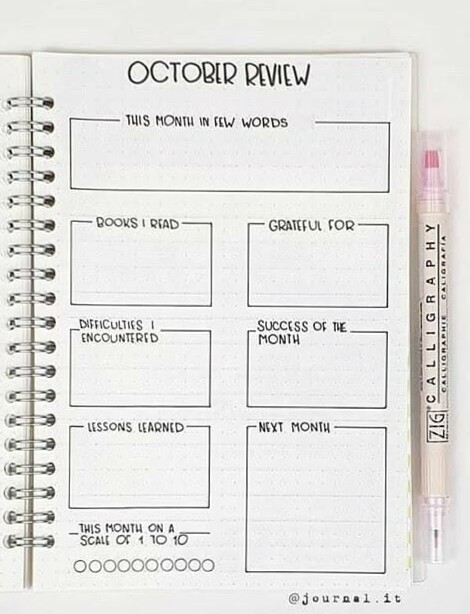 OCTOBER REVIEW
THIS MONTH IN FEW WORDS
BOOKS I READ
GRATEFUL FOR
DIFFICULTIES I
ENCOUNTERED
SUCCESS OF THE
MONTH
LESSONS LEARNED
NEXT MONTH
THIS MONTH ON A
SCALE OF 1 TO 10
ZIG® CALLIGRAPHY
CALLIGRAPHIE CALIGRAFÍA
@journal.it